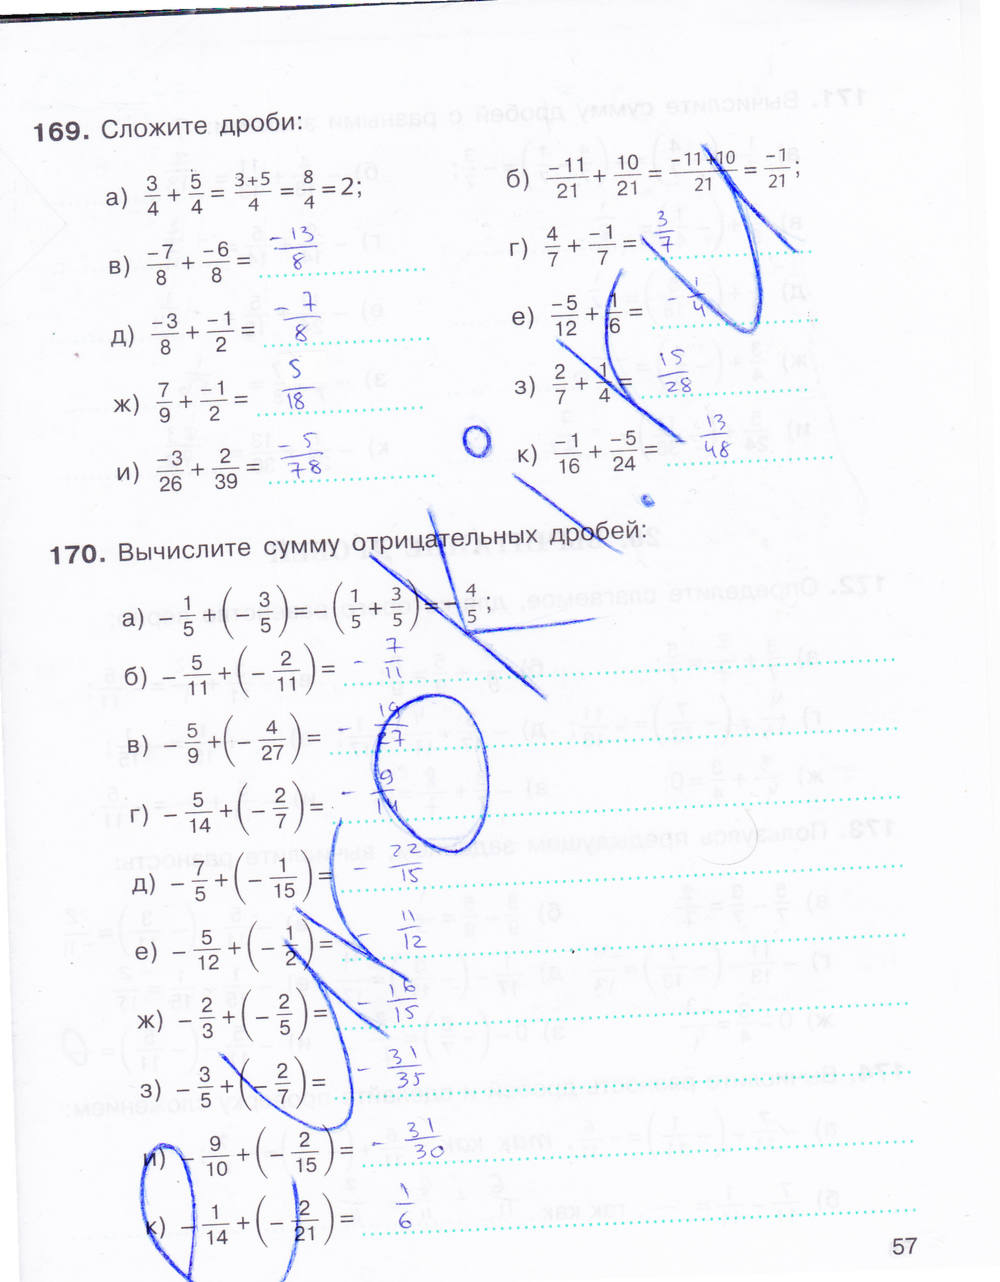 169. Сложите дроби:
а) 3/4 + 5/4 = 3+5/4 = 8/4 = 2;
б) -11/21 + 10/21 = -11+10/21 = -1/21;
в) -7/8 + -6/8 = -13/8
г) 4/7 + -1/7 = 3/7
д) -3/8 + -1/2 = -7/8
е) -5/12 + 1/6 = -1/4
ж) 7/9 + -1/2 = 5/18
з) 2/7 + 1/4 = 15/28
и) -3/26 + 2/39 = -5/78
к) -1/16 + -5/24 = 13/48
170. Вычислите сумму отрицательных дробей:
а) -1/5 + (-3/5) = -(1/5 + 3/5) = -4/5;
б) -5/11 + (-2/11) = -7/11
в) -5/9 + (-4/27) = -19/27
г) -5/14 + (-2/7) = -9/14
д) -7/5 + (-1/15) = -22/15
е) -5/12 + (-1/2) = -11/12
ж) -2/3 + (-2/5) = -16/15
з) -3/5 + (-2/7) = -31/35
и) -9/10 + (-2/15) = -31/30
к) -1/14 + (-2/21) = 1/6
57